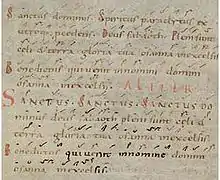 Sanctus dominus. Spiritus paraclytus ex
utroque procedens. Deus sabaoth. Pleni sunt
celi & terra gloria tua osanna inexcelsis
Benedictus quiuenit innomine domini
osanna inexcelsis. ALITER
SANCTUS. SANCTUS. SANCTUS DO
minus deus sabaoth pleni sunt celi &
terra gloria tua osanna inexcelsis
Benedictus Quiuenit innomine domini
osanna inexcelsis